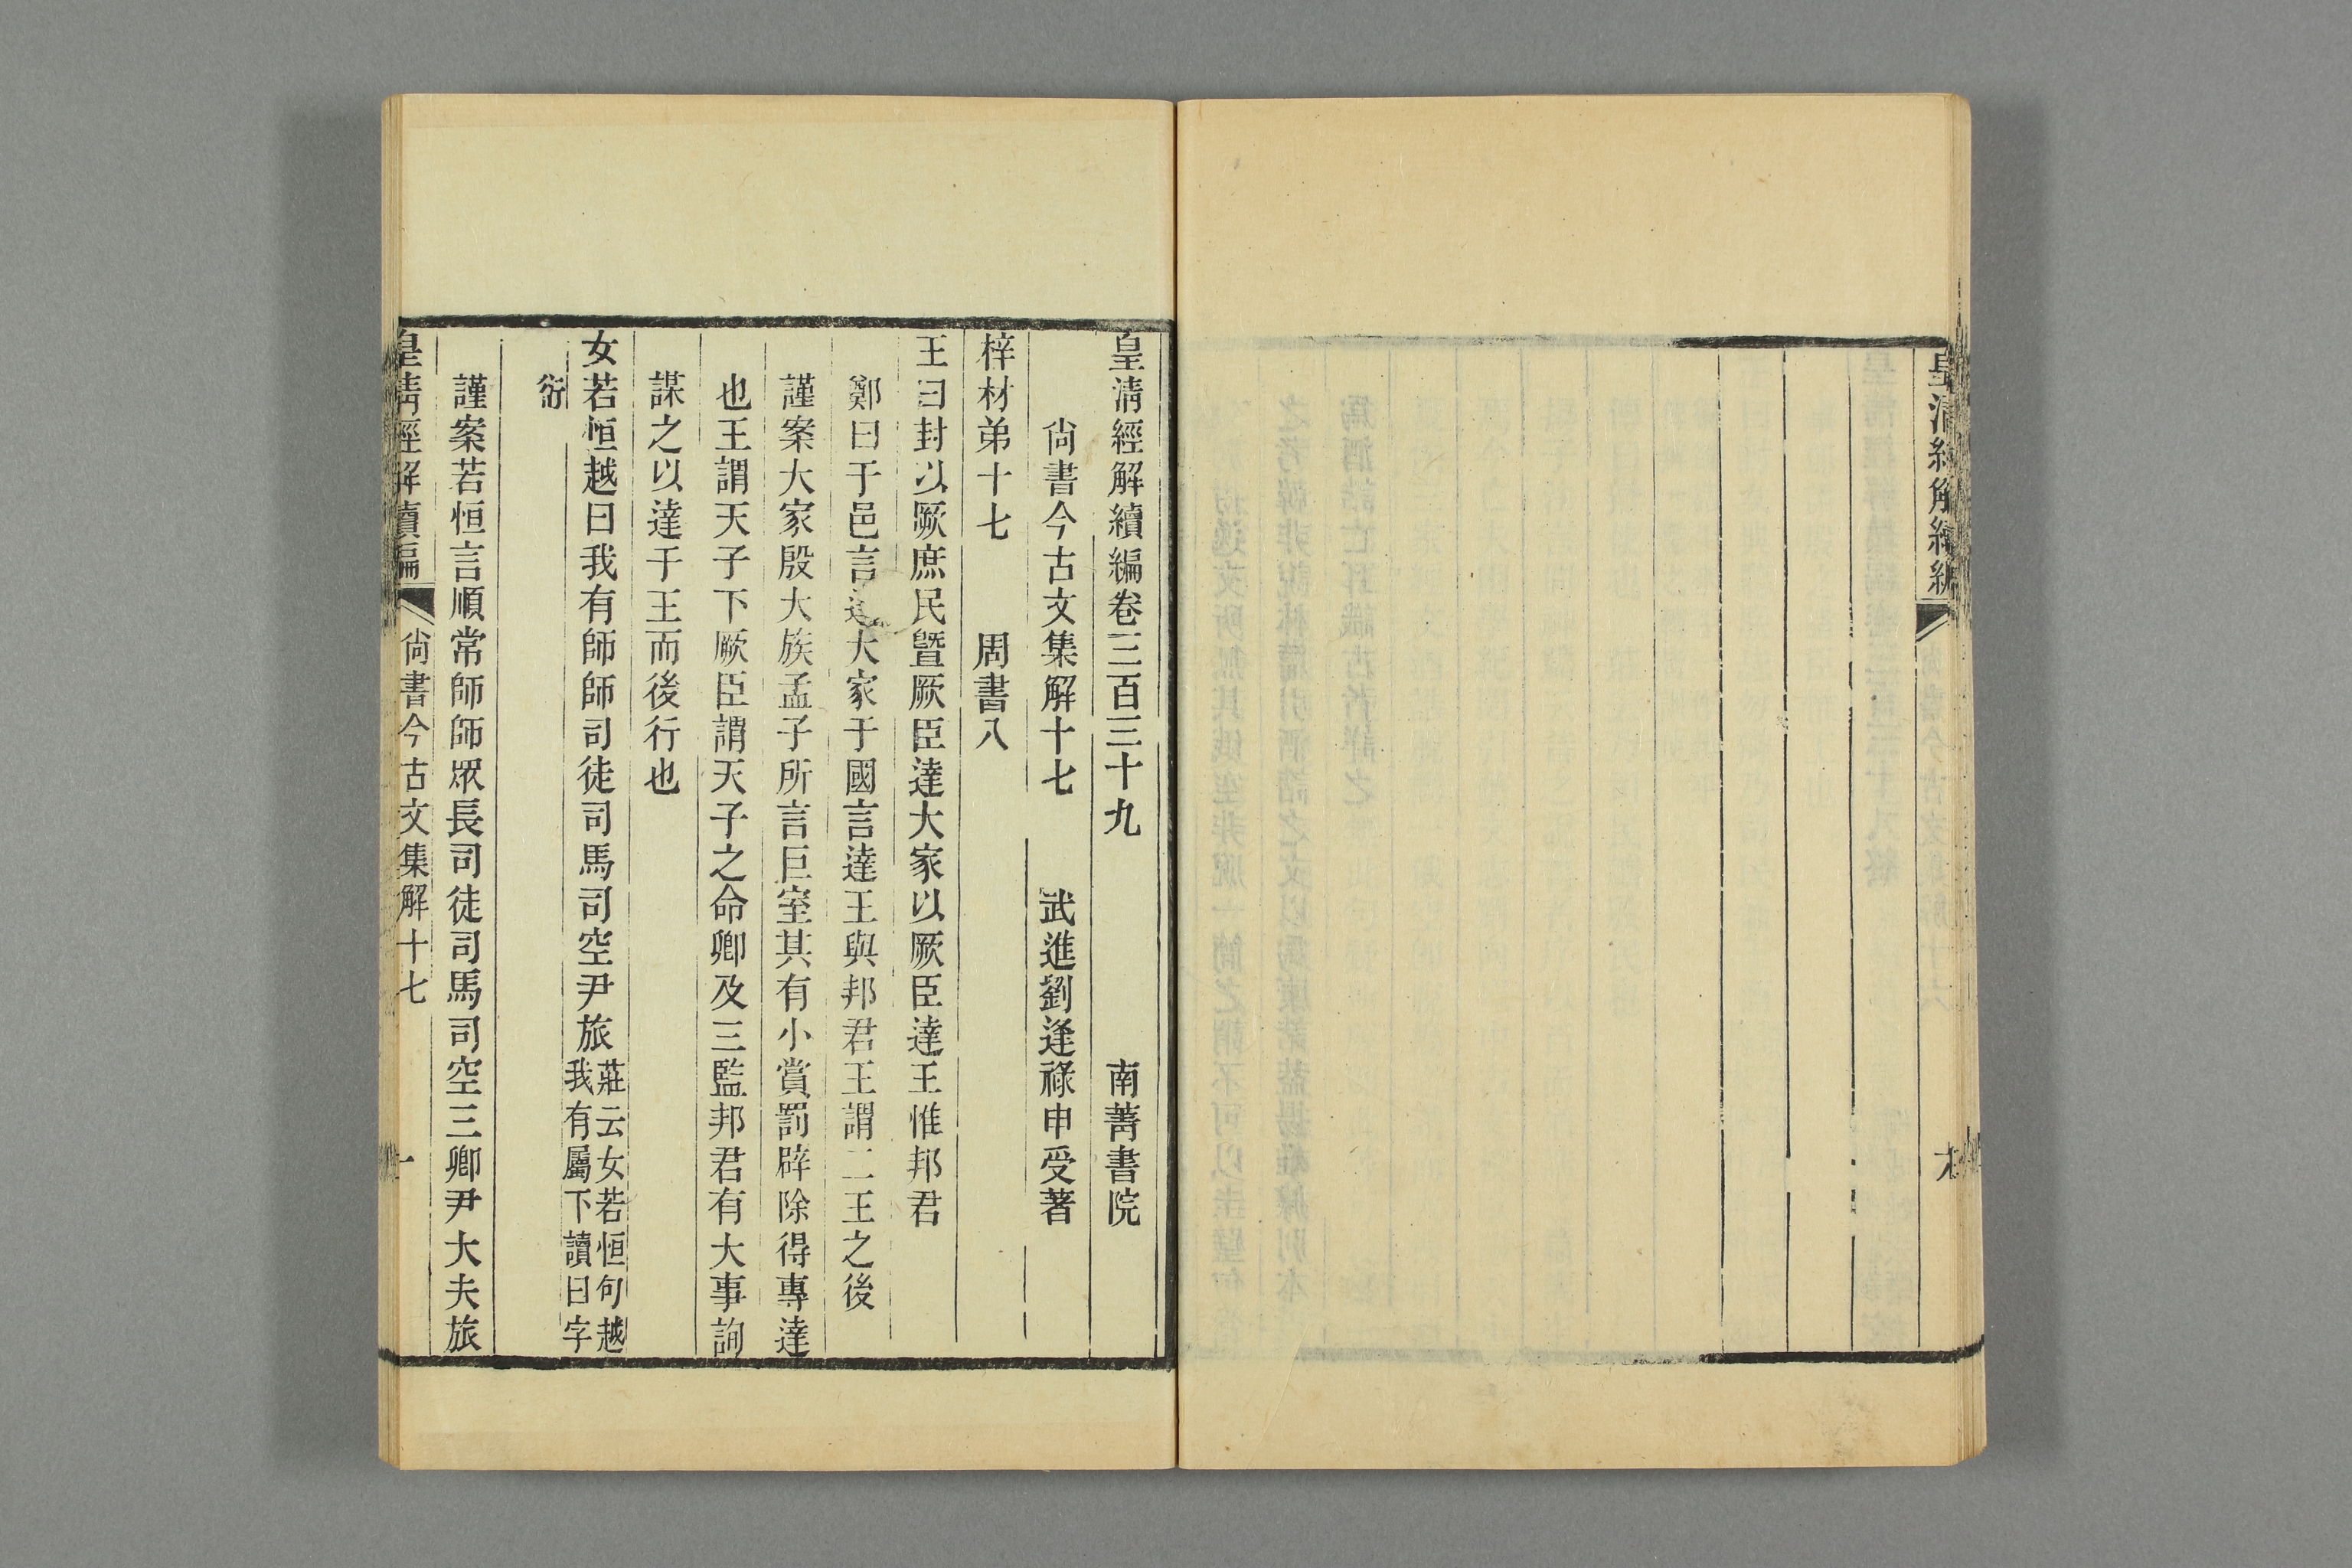 皇清經解續編
皇清經解續編卷三百三十九 南菁書院
尙書今古文集解十七 武進劉逢祿申受著
梓材弟十七 周書八
王曰封以厥庶民曁厥臣達大家以厥臣達王惟邦君
鄭曰于邑言達大家于國言達王與邦君王謂二王之後
謹案大家殷大族孟子所言巨室其有小賞罰辟除得專達
也王謂天子下厥臣謂天子之命卿及三監邦君有大事詢
謀之以達于王而後行也
女若恒越曰我有師師司徒司馬司空尹旅莊云女若恒句越
我有屬下讀曰字
衍
謹案若恒言順常師師眾長司徒司馬司空三卿尹大夫旅
皇清經解續編 尙書今古文集解十七 一